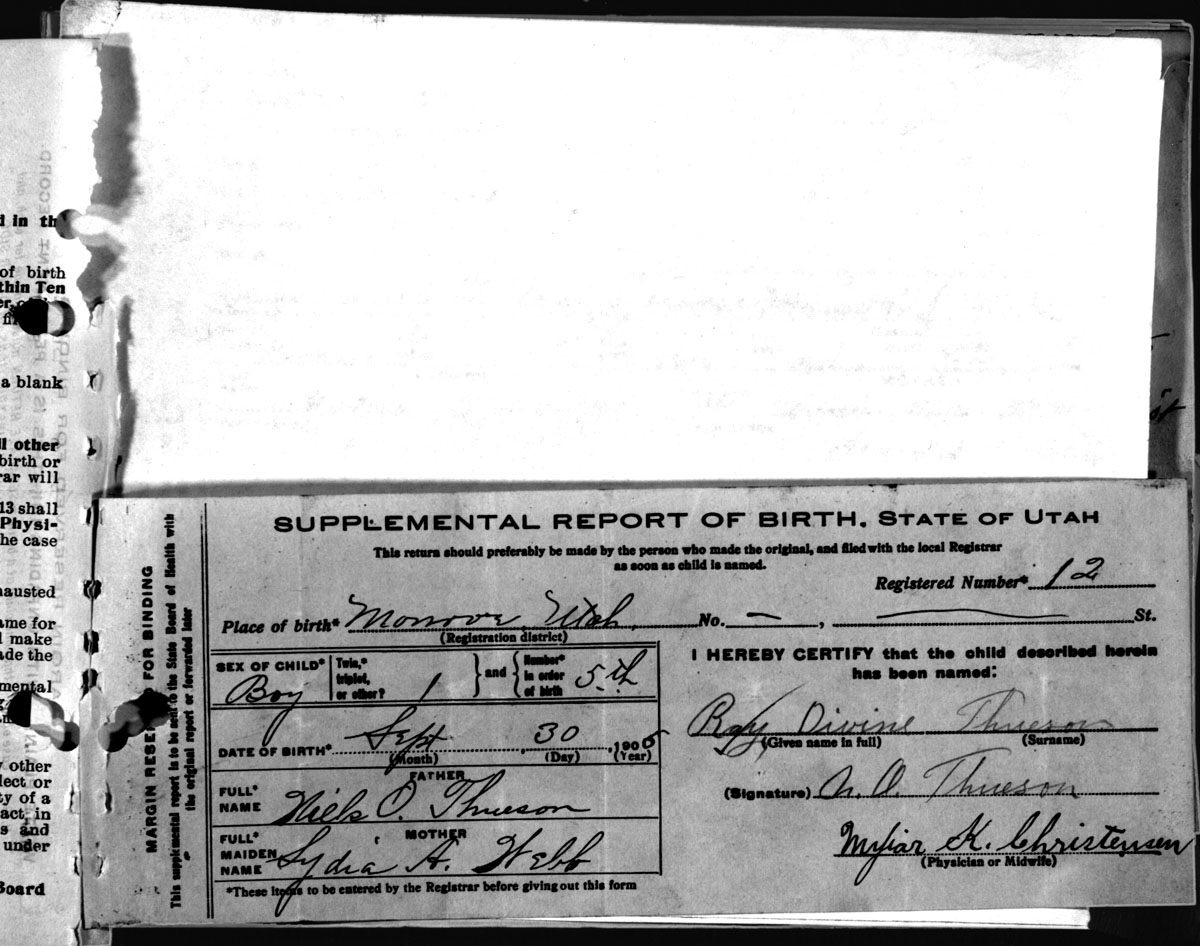 d in th
of birth
thin Ten
a blank
ll other
birth or
rar will
13 shall
Physi-
he case
hausted
ame for
l make
ade the
mental
y other
lect or
ty of a
act in
s and
under
Board
MARGIN RESERVED FOR BINDING
This supplemental report is to be sent to the State Board of Health with
the original report or forwarded later
SUPPLEMENTAL REPORT OF BIRTH, STATE OF UTAH
This return should preferably be made by the person who made the original, and filed with the local Registrar
as soon as child is named.
Registered Number* 12
Place of birth* Monroe, Utah. No. — , — St.
(Registration district)
SEX OF CHILD* Boy
Twin,* triplet, or other? 1
and
Number* in order of birth 5th
DATE OF BIRTH* Sept 30, 1905
(Month) (Day) (Year)
FATHER
FULL* NAME Niels O. Thueson
MOTHER
FULL* MAIDEN NAME Lydia A. Webb
*These items to be entered by the Registrar before giving out this form
I HEREBY CERTIFY that the child described herein
has been named:
Ray Divine Thueson
(Given name in full) (Surname)
(Signature) N. O. Thueson
K. Christensen
(Physician or Midwife)